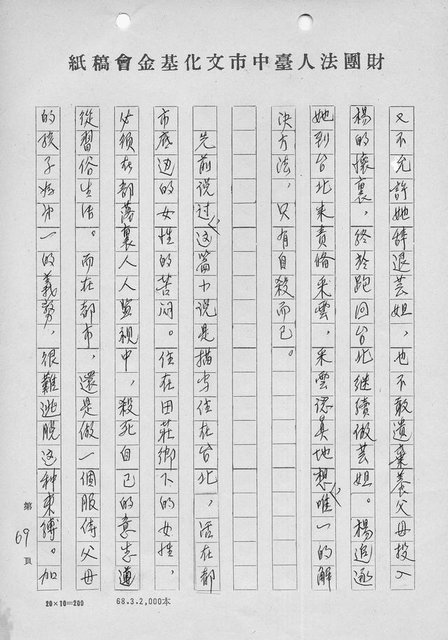 財團法人臺中市文化基金會稿紙
又不允許她辭退芸妲，也不敢遺棄養父母投入
楊的懷裏，終於跑回台北繼續做芸妲。楊追逐
她到台北來責備采雲，采雲認真地想，唯一的解
決方法，只有自殺而已。
先前說过，这篇小说是描写住在台北，活在都
市底边的女性的苦闷。住在田莊鄉下的女性，
必須在部落裏人人監视中，殺死自己的意志遵
從習俗生活。而在都市，還是做一個服侍父母
的孩子為第一的義務，很難逃脫这种束缚。如
第69頁
20×10=200
68.3.2,000本